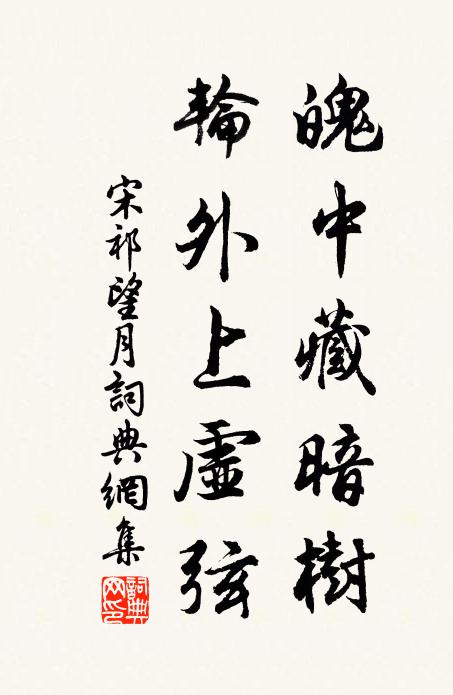 魄中藏暗樹
輪外上虛弦
宋祁望月詞典網集
詞典网印